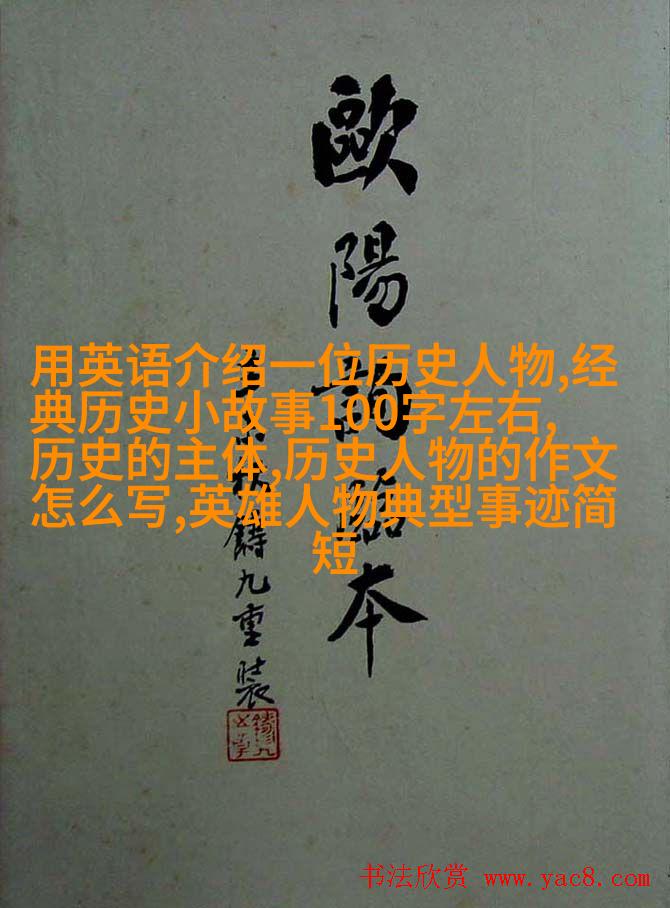 歐陽詢臨本
鑄九重裝
用英语介绍一位历史人物,经
典历史小故事100字左右,
历史的主体,历史人物的作文
怎么写,英雄人物典型事迹简
短
书法欣赏 www.yac8.com